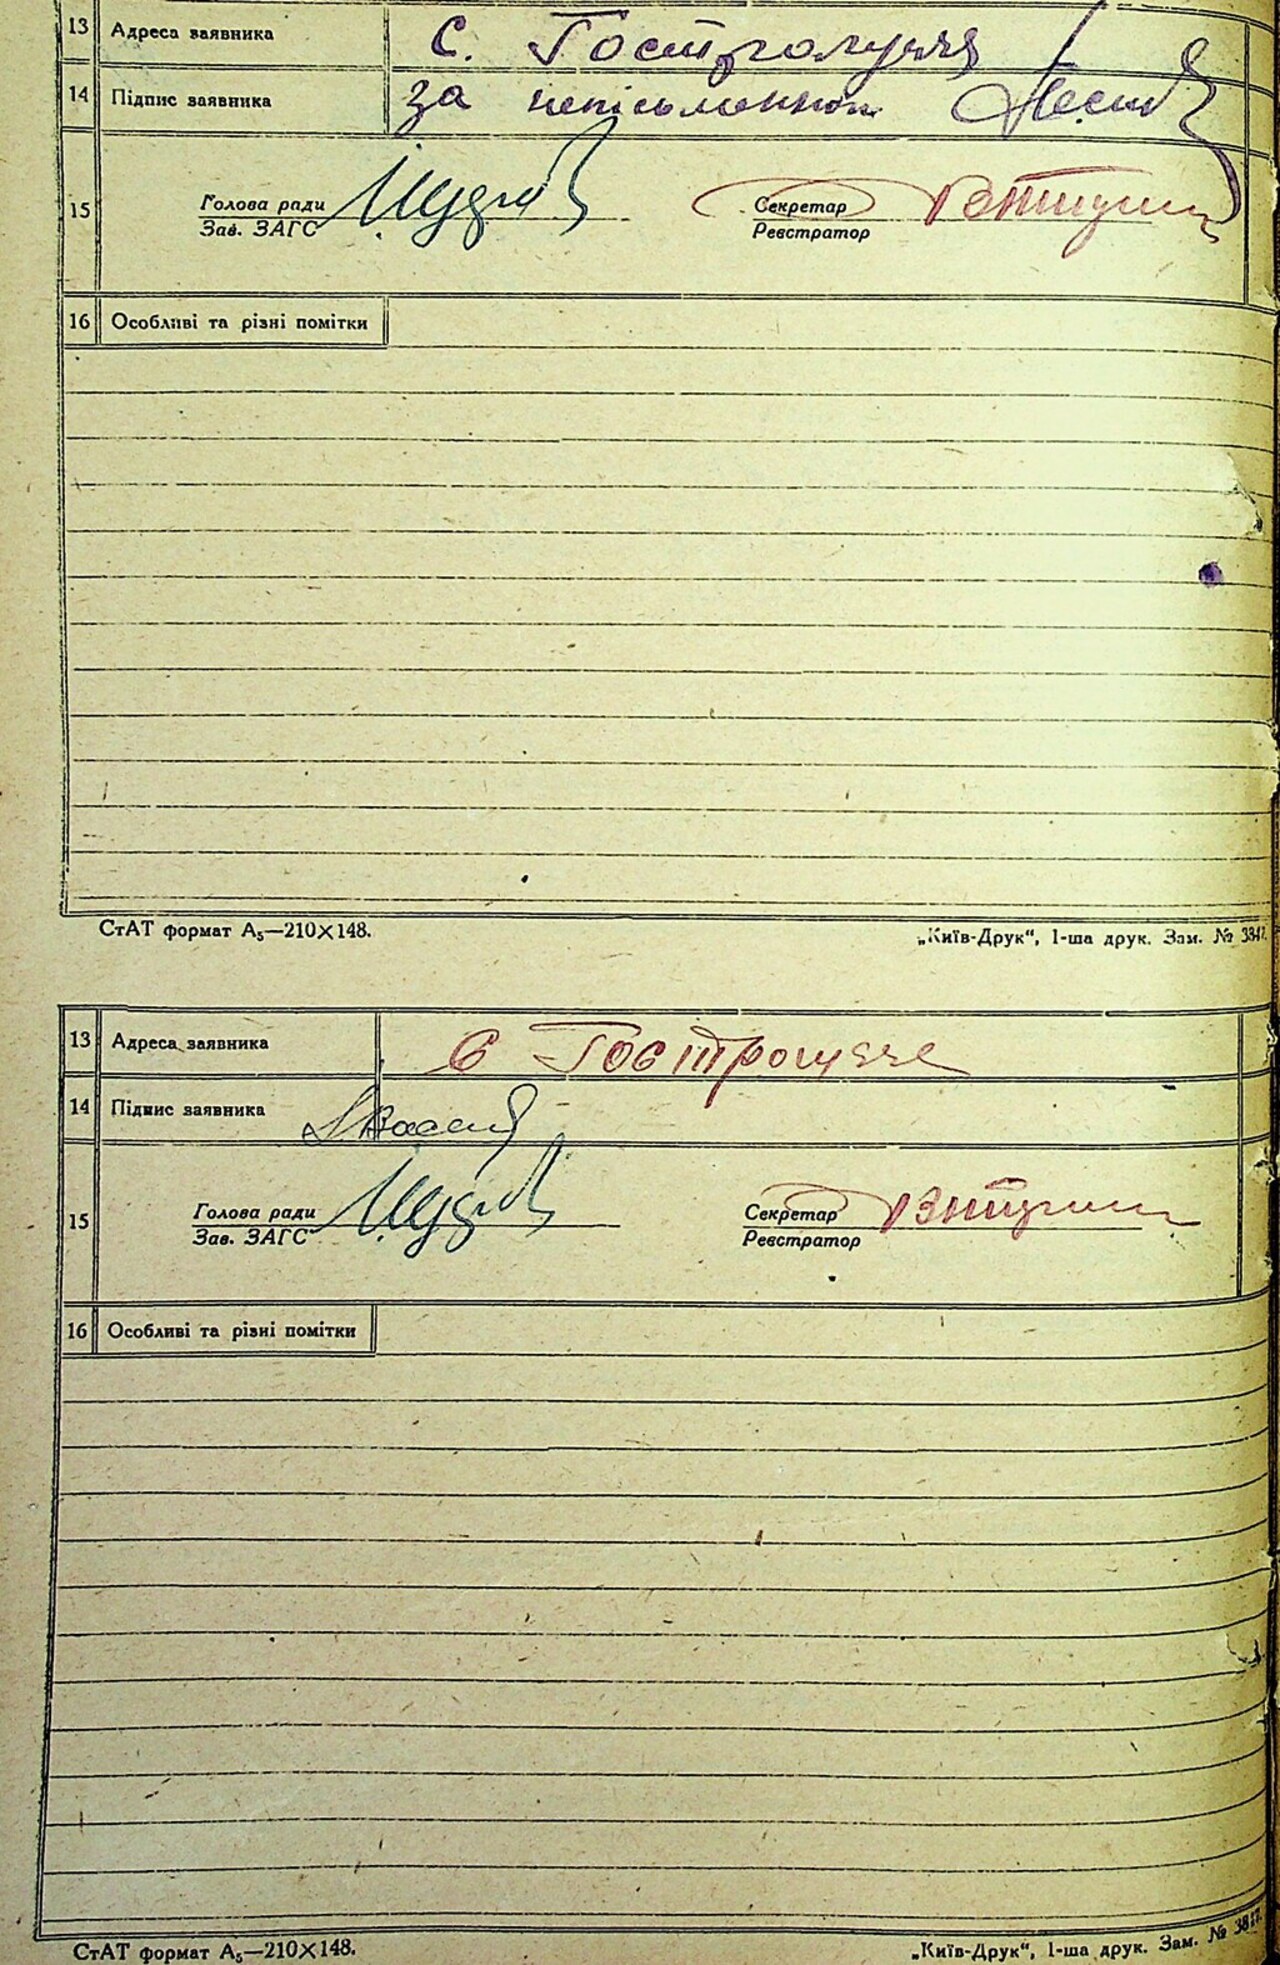 13 Адреса заявника с. Гостролуччя
14 Підпис заявника за неписьменного
15 Голова ради Секретар
Зав. ЗАГС Реєстратор
16 Особливі та різні помітки
СтАТ формат А₅—210×148. „Київ-Друк“, 1-ша друк. Зам. № 3317.
13 Адреса заявника с Гостролуччя
14 Підпис заявника
15 Голова ради Секретар
Зав. ЗАГС Реєстратор
16 Особливі та різні помітки
СтАТ формат А₅—210×148. „Київ-Друк“, 1-ша друк. Зам. № 3817.